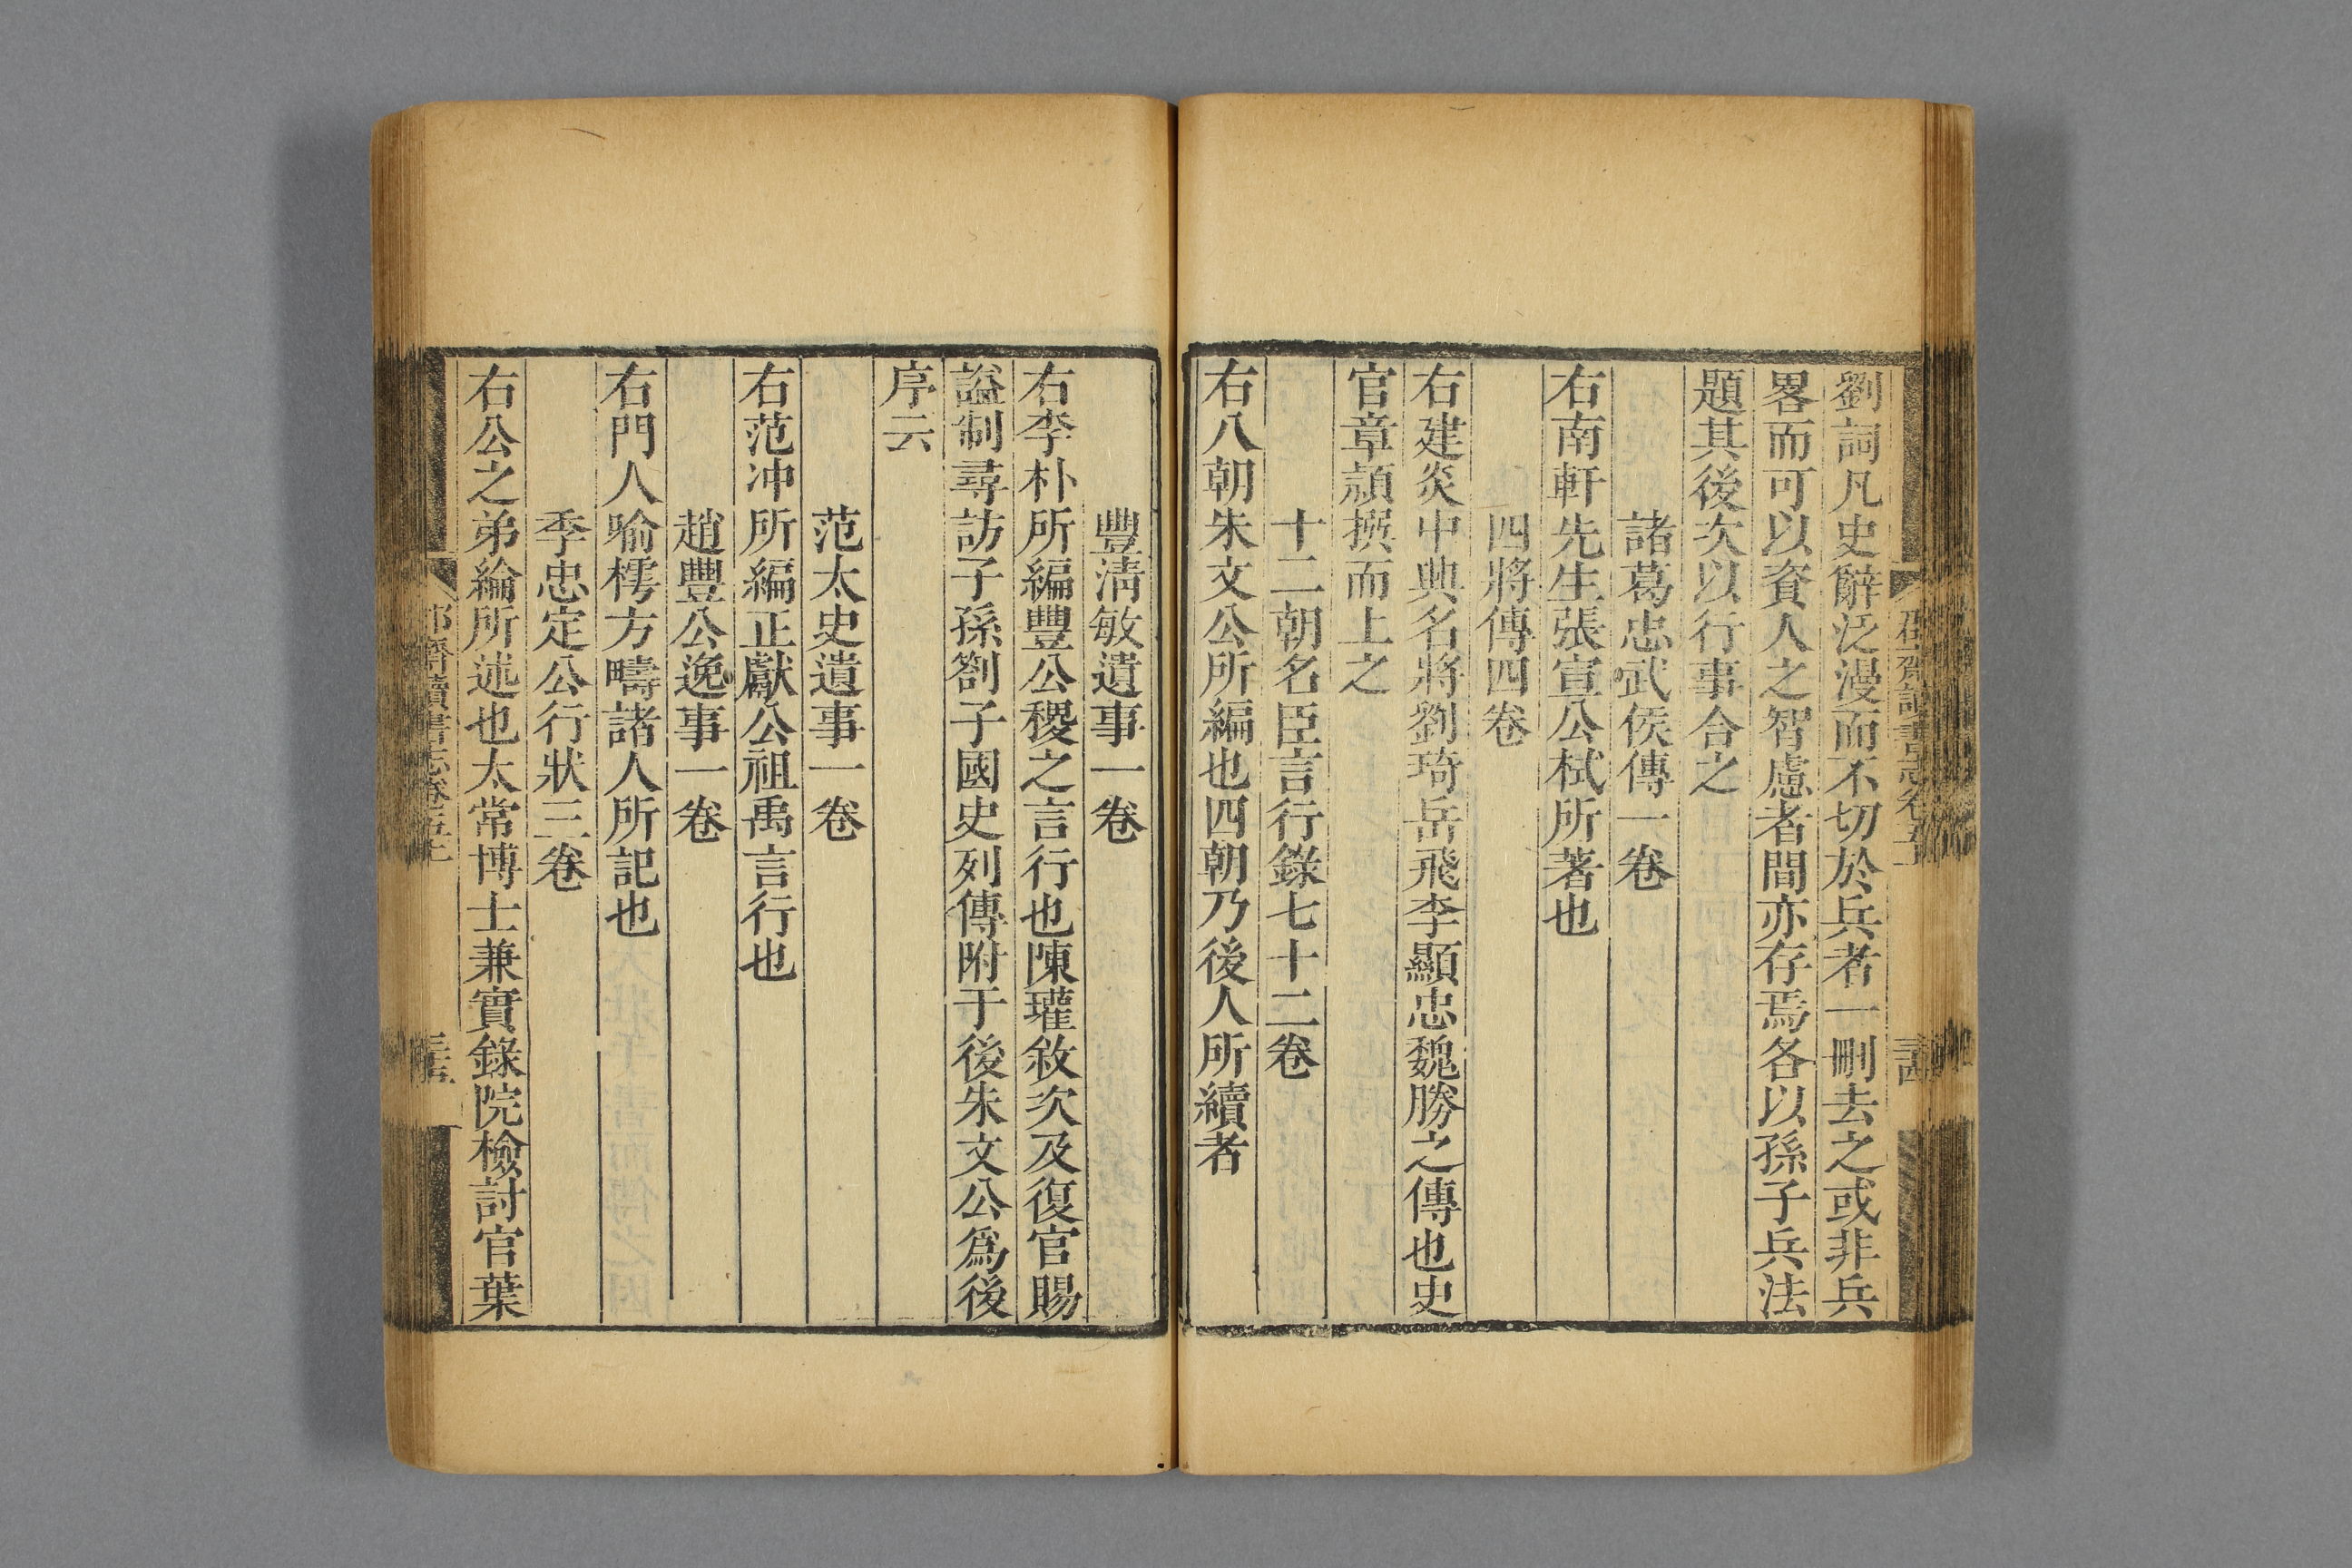 劉詞凡史辭泛漫而不切於兵者一刪去之或非兵
畧而可以資人之智慮者間亦存焉各以孫子兵法
題其後次以行事合之
諸葛忠武侯傳一卷
右南軒先生張宣公栻所著也
四將傳四卷
右建炎中興名將劉琦岳飛李顯忠魏勝之傳也史
官章頴撰而上之
十二朝名臣言行錄七十二卷
右八朝朱文公所編也四朝乃後人所續者
豐淸敏遺事一卷
右李朴所編豐公稷之言行也陳瓘敘次及復官賜
謚制尋訪子孫劄子國史列傳附于後朱文公爲後
序云
范太史遺事一卷
右范冲所編正獻公祖禹言行也
趙豐公逸事一卷
右門人喻樗方疇諸人所記也
季忠定公行狀三卷
右公之弟綸所述也太常博士兼實錄院檢討官葉